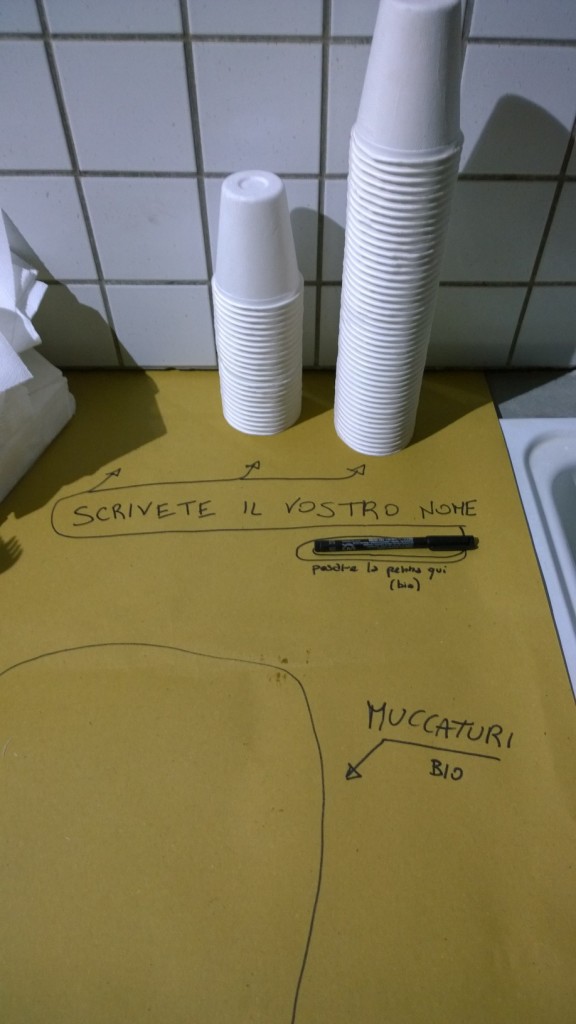 SCRIVETE IL VOSTRO NOME
la penna qui
(bio)
MUCCATURI
BIO